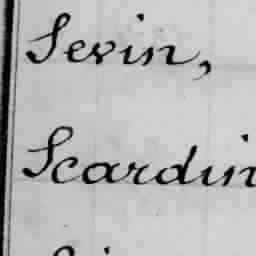 Sevin,
Scardin